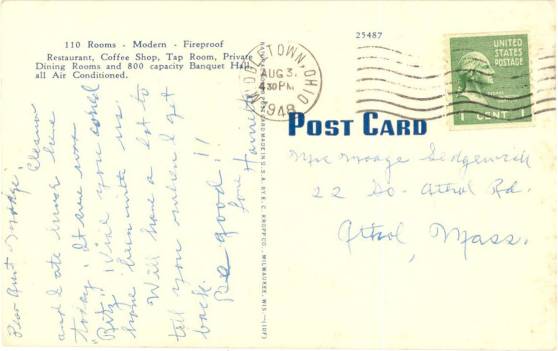 110 Rooms - Modern - Fireproof
Restaurant, Coffee Shop, Tap Room, Private
Dining Rooms and 800 capacity Banquet Hall,
all Air Conditioned.
Dear Aunt Madge,
Eleanor
and I ate dinner here
today. It sure was
"Ritz". Wish you could
have been with us.
Will have a lot to
tell you when I get
back.
Be good!!
Love Harriett
C. KROPP CO., MILWAUKEE, WIS.
25487
TOWN, OHIO
AUG 3
4 30 PM
1948
UNITED
STATES
POSTAGE
1 CENT 1
POST CARD
Mrs Madge Sedgewick
22 So. Athol Rd.
Athol, Mass.